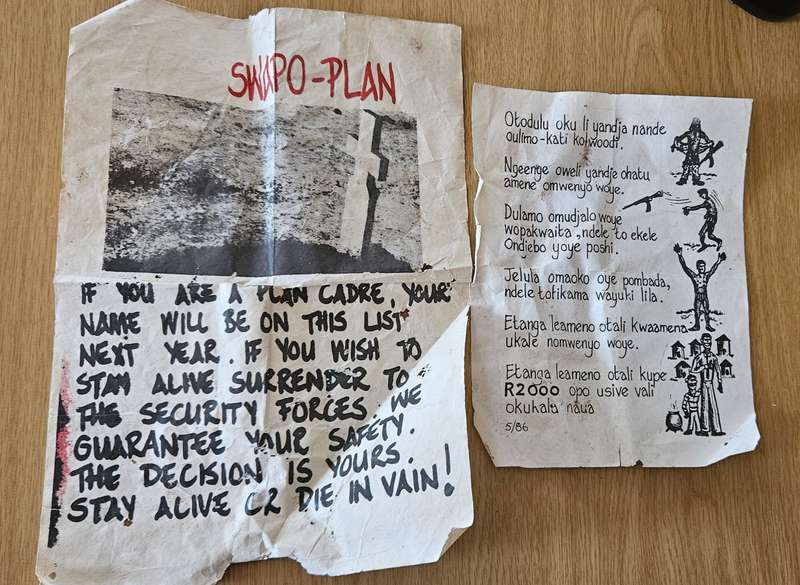 SWAPO-PLAN
IF YOU ARE A PLAN CADRE, YOUR
NAME WILL BE ON THIS LIST
NEXT YEAR. IF YOU WISH TO
STAY ALIVE SURRENDER TO
THE SECURITY FORCES. WE
GUARANTEE YOUR SAFETY.
THE DECISION IS YOURS.
STAY ALIVE OR DIE IN VAIN!
Otodulu oku li yandja nande
oulimo-kati kolwoodi.
Ngeenge oweli yandje ohatu
amene omwenyo woye.
Dulamo omudjalo woye
wopakwaita, ndele to ekele
Ondjebo yoye poshi.
Jelula omaoko oye pombada,
ndele tofikama wayuki lila.
Etanga leameno otali kwaamena
ukale nomwenyo woye.
Etanga leameno otali kupe
R2000 opo usive vali
okukalu naua
5/86